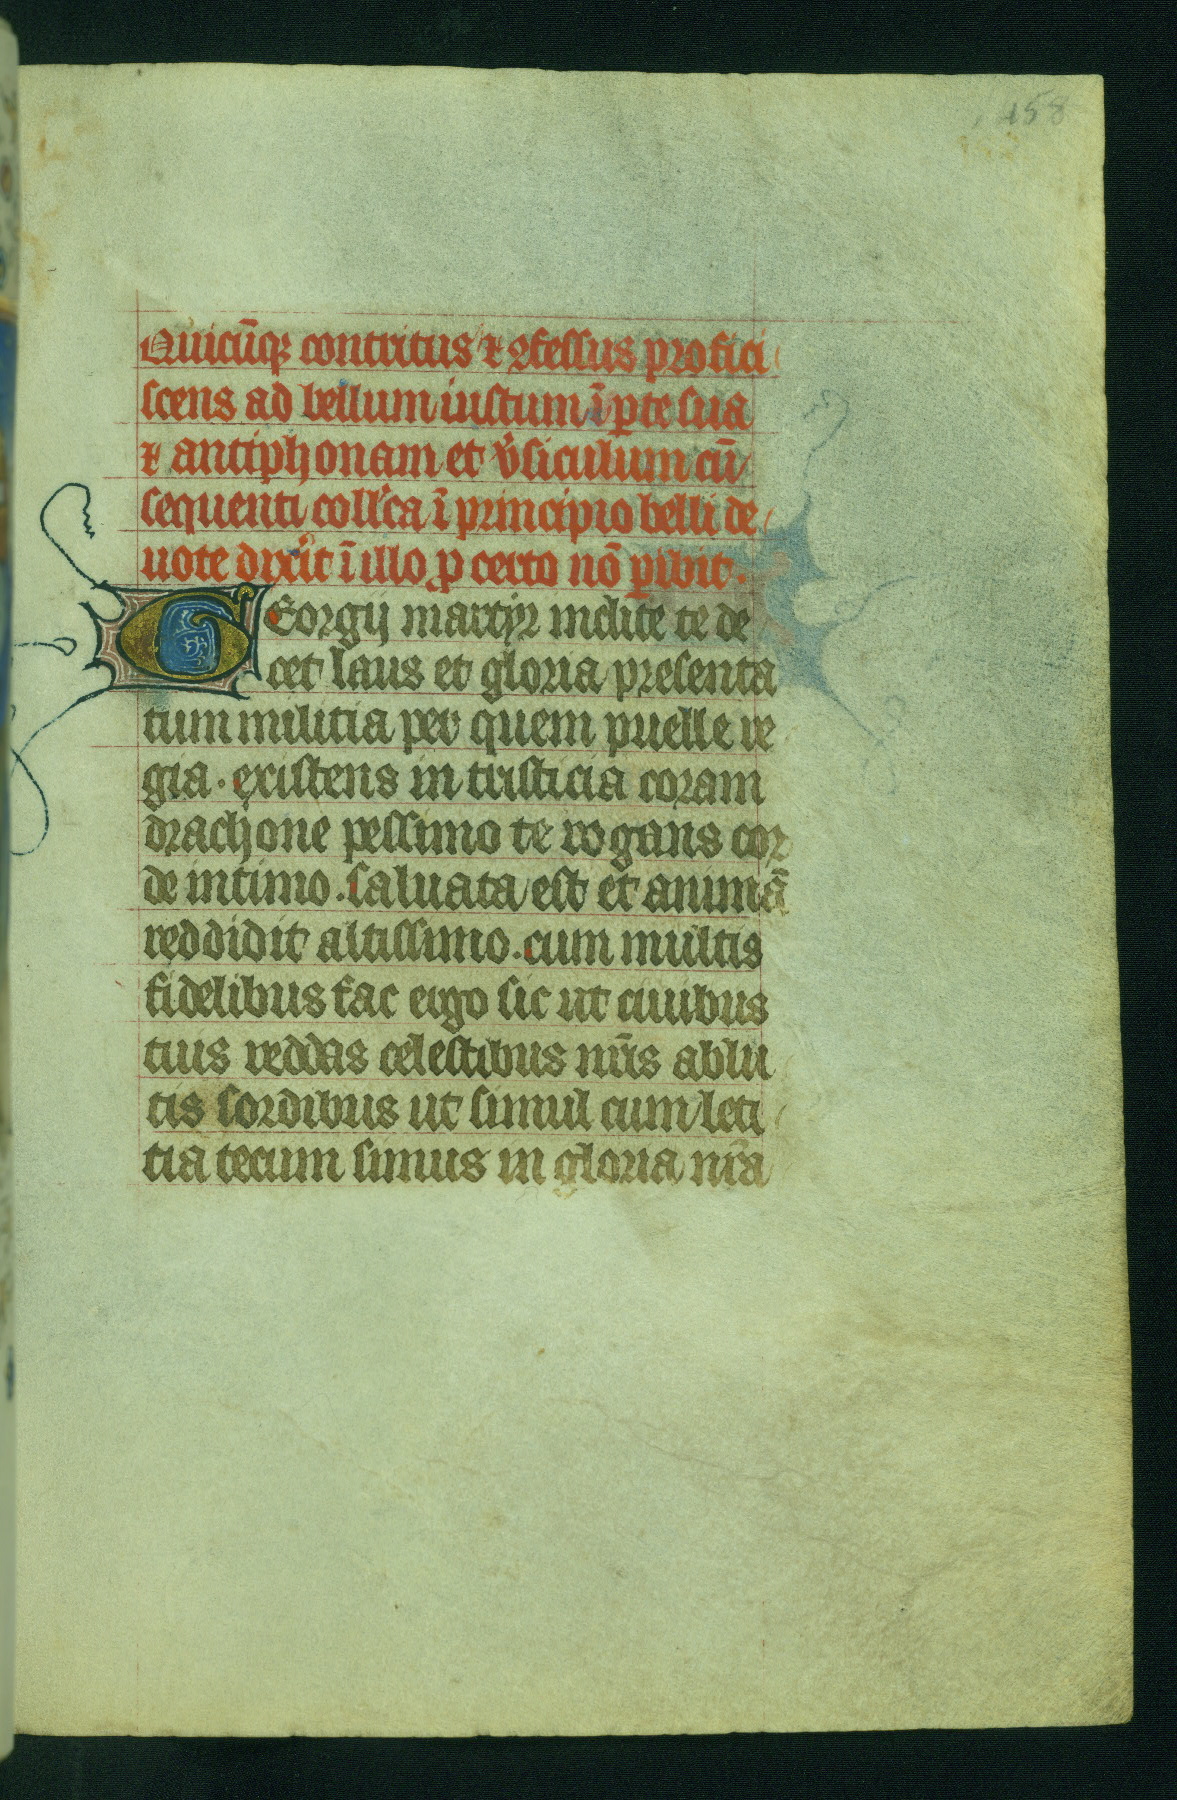 158
Quicūqꝫ contritus ⁊ ꝯfessus profici
scens ad bellum iustum ī ꝑte sua
⁊ antiphonam et v̓siculum cū
sequenti coll'ca ī principio belli de
uote dixeīt ī illo ꝓ certo nō ꝑibit.
GEorgij martyr inclite te de
cet laus et gloria presenta
tum militia per quem puelle re
gia. existens in tristicia coram
drachone pessimo te rogans cor
de intimo. saluata est et animā
reddidit altissimo. cum multis
fidelibus fac ergo sic ut ciuibus
tuis reddas celestibus nr̄is ablu
tis sordibus ut simul cum leti
tia tecum simus in gloria nr̄a